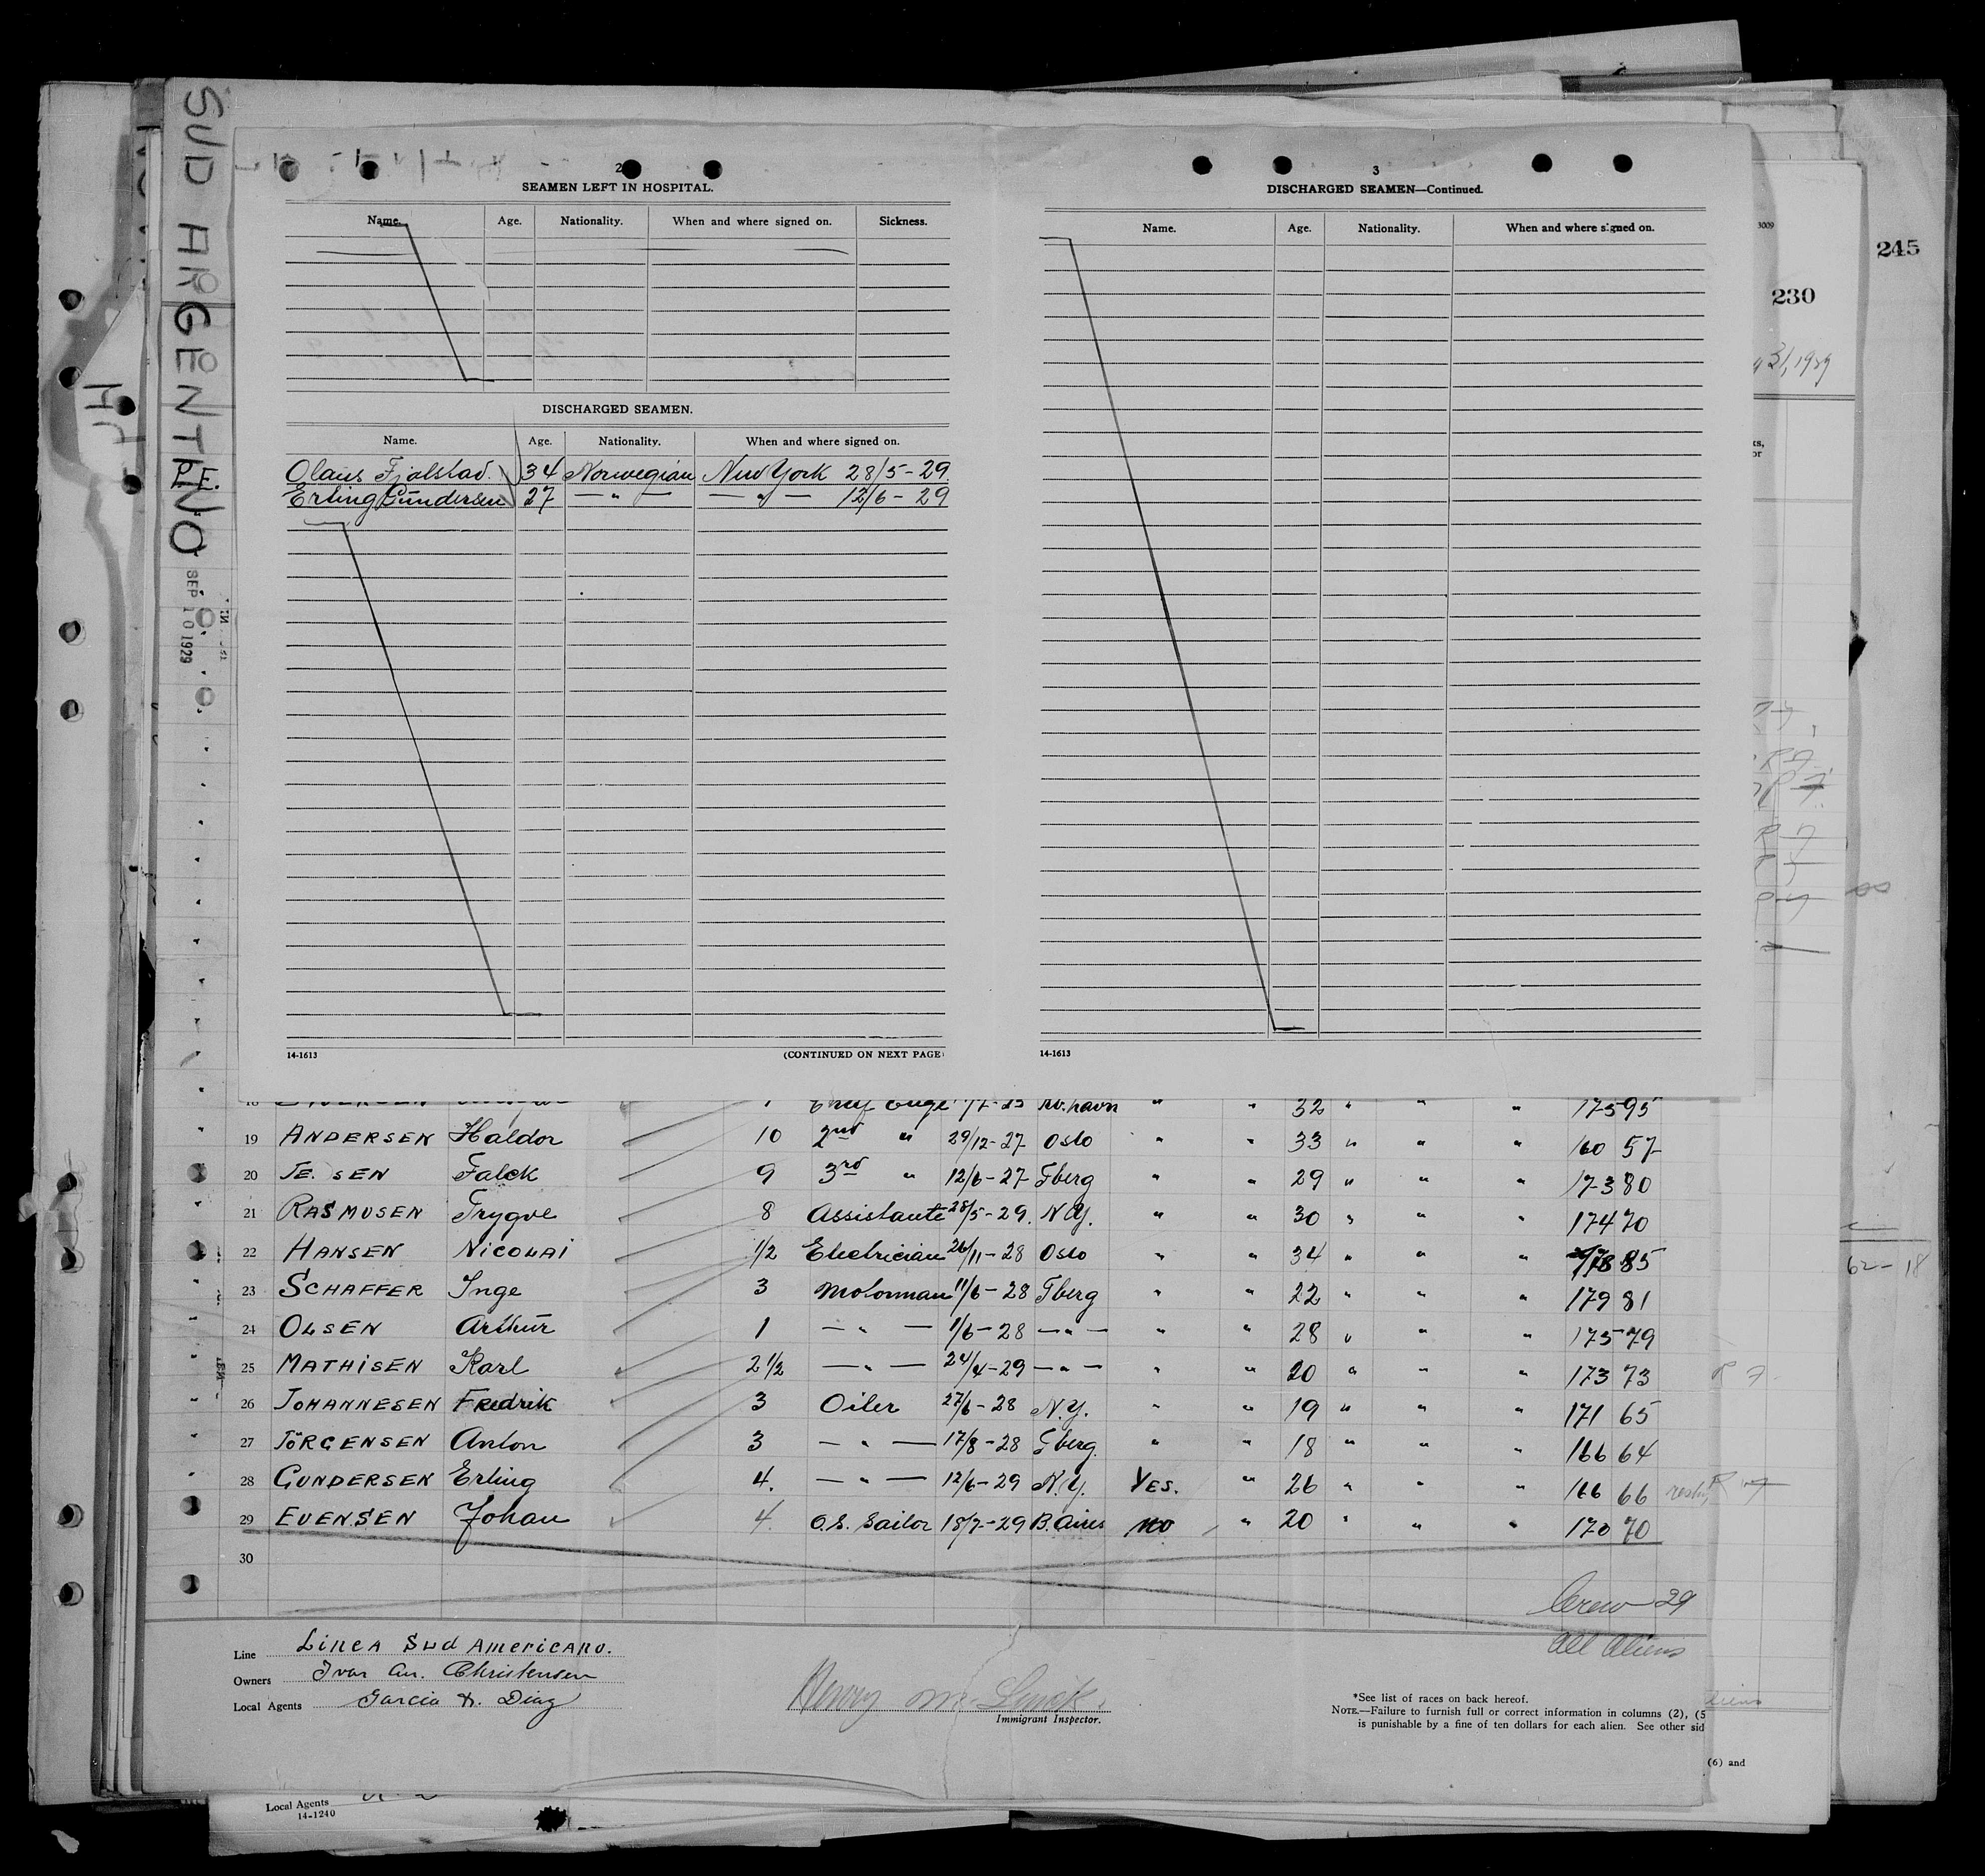 SUD ARGENTINO
P.E.
SEP 10 1929
245
3009
230
31, 1929
2
SEAMEN LEFT IN HOSPITAL.
Name. Age. Nationality. When and where signed on. Sickness.
DISCHARGED SEAMEN.
Name. Age. Nationality. When and where signed on.
Olaus Fjølstad. 34 Norwegian New York 28/5-29.
Erling Gundersen 27 — " — — " — 12/6-29
14-1613 (CONTINUED ON NEXT PAGE)
3
DISCHARGED SEAMEN—Continued.
Name. Age. Nationality. When and where signed on.
14-1613
18 1 Chief Engr 32 " " " 175 95
19 ANDERSEN Haldor 10 2nd " 29/12-27 Oslo " " 33 " " " 160 57
20 JE. SEN Falck 9 3rd " 12/6-27 Tberg " " 29 " " " 173 80
21 RASMUSEN Trygve 8 Assistante 28/5-29. N.Y. " " 30 " " " 174 70
22 HANSEN NICOLAI 1/2 Electrician 26/11-28 Oslo " " 34 " " " 178 85
23 SCHAFFER Inge 3 Motorman 11/6-28 Tberg " " 22 " " " 179 81
24 OLSEN Arthur 1 — " — 1/6-28 — " — " " 28 " " " 175 79
25 MATHISEN Karl 2 1/2 — " — 24/4-29 — " — " " 20 " " " 173 73
26 JOHANNESEN Fredrik 3 Oiler 27/6-28 N.Y. " " 19 " " " 171 65
27 JÖRGENSEN Anton 3 — " — 17/8-28 Tberg. " " 18 " " " 166 64
28 GUNDERSEN Erling 4. — " — 12/6-29 N.Y. YES. " 26 " " " 166 66
29 EVENSEN Johan 4 O.S. Sailor 18/7-29 B.Aires NO " 20 " " " 170 70
30
62-18
Crew 29
All Aliens
Line LINEA SUD AMERICANO.
Owners Ivar An. Christensen
Local Agents Garcia & Diaz
Henry
Immigrant Inspector.
*See list of races on back hereof.
NOTE.—Failure to furnish full or correct information in columns (2), (5
is punishable by a fine of ten dollars for each alien. See other sid
(6) and
Local Agents
14-1240